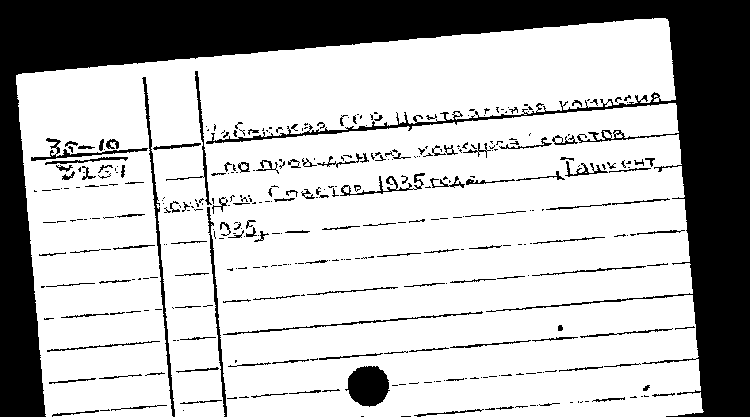 35-10
3251
Узбекская ССР. Центральная комиссия
по проведению конкурса советов
Конкурсы Советов 1935 года. ,Ташкент,
1935,